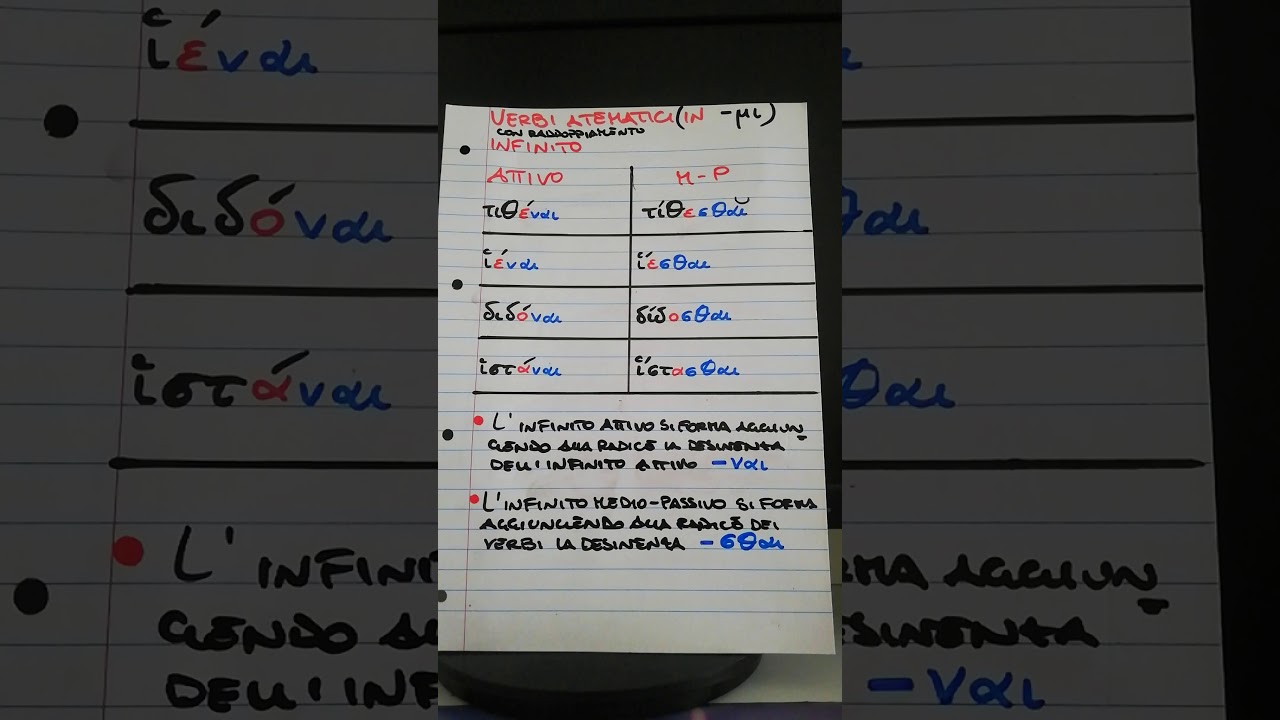 VERBI ATEMATICI (IN -μι)
CON RADDOPPIAMENTO
INFINITO
ATTIVO M-P
τιθέναι τίθεσθαι
ἱέναι ἵεσθαι
διδόναι δίδοσθαι
ἱστάναι ἵστασθαι
• L'INFINITO ATTIVO SI FORMA AGGIUN
GENDO ALLA RADICE LA DESINENZA
DELL'INFINITO ATTIVO -ναι
• L'INFINITO MEDIO-PASSIVO SI FORMA
AGGIUNGENDO ALLA RADICE DEI
VERBI LA DESINENZA -σθαι